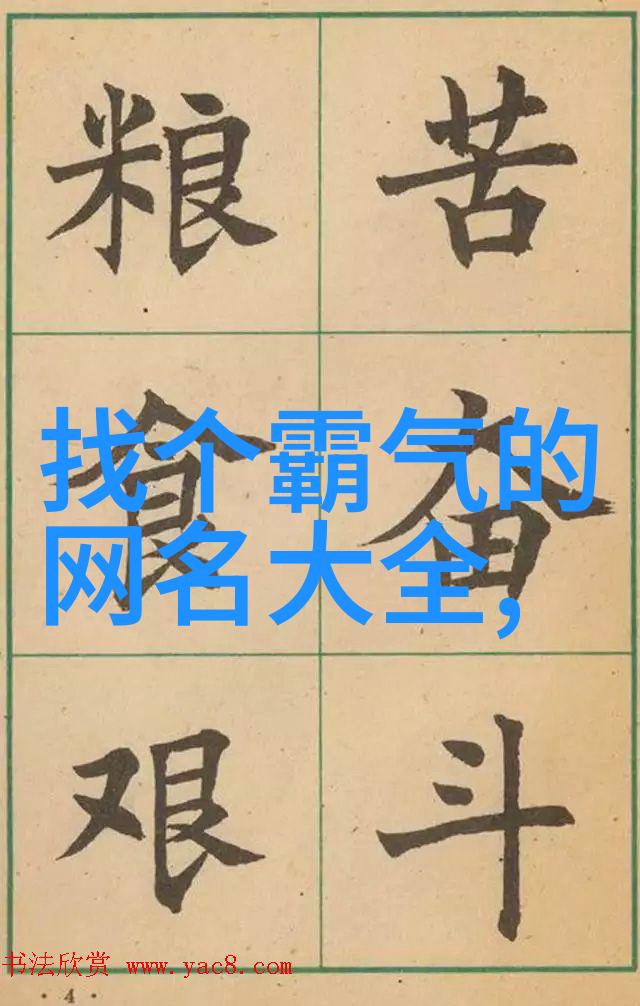 粮食艰
苦奋斗
找个霸气的
网名大全,
书法欣赏 www.yac8.com
· 4 ·